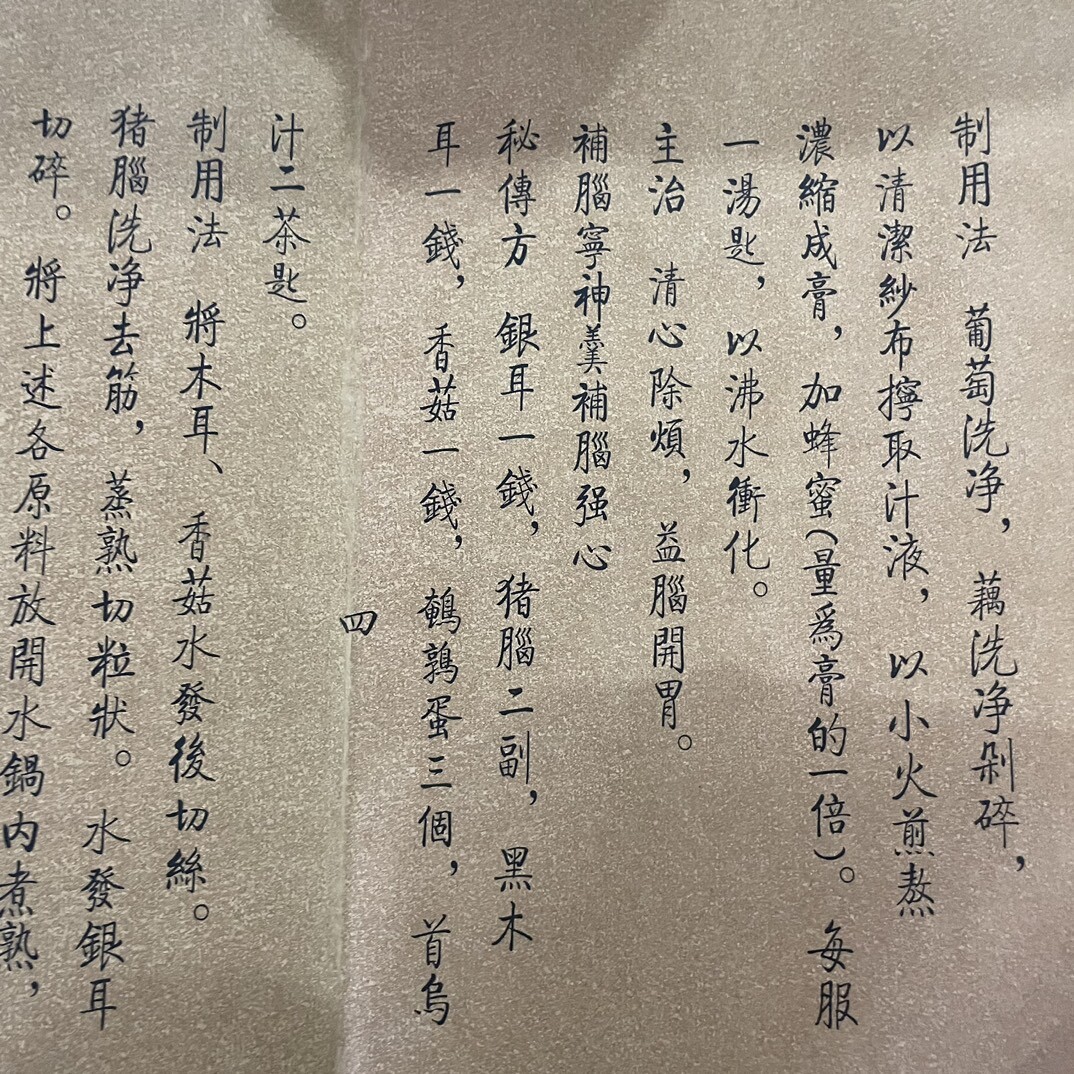 制用法　葡萄洗净，藕洗净剁碎，
以清潔紗布擰取汁液，以小火煎熬
濃縮成膏，加蜂蜜（量爲膏的一倍）。每服
一湯匙，以沸水衝化。
主治　清心除煩，益腦開胃。
補腦寧神羹補腦强心
秘傳方　銀耳一錢，猪腦二副，黑木
耳一錢，香菇一錢，鵪鶉蛋三個，首烏
四
汁二茶匙。
制用法　將木耳、香菇水發後切絲。
猪腦洗净去筋，蒸熟切粒狀。水發銀耳
切碎。將上述各原料放開水鍋内煮熟，